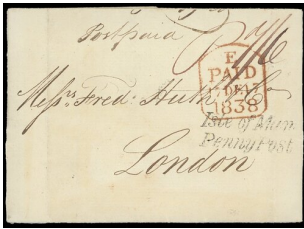 Postpaid
E
PAID
17 DE 17
1838
Messrs. Fred: Huth & Co
Isle of Man
Penny Post
London